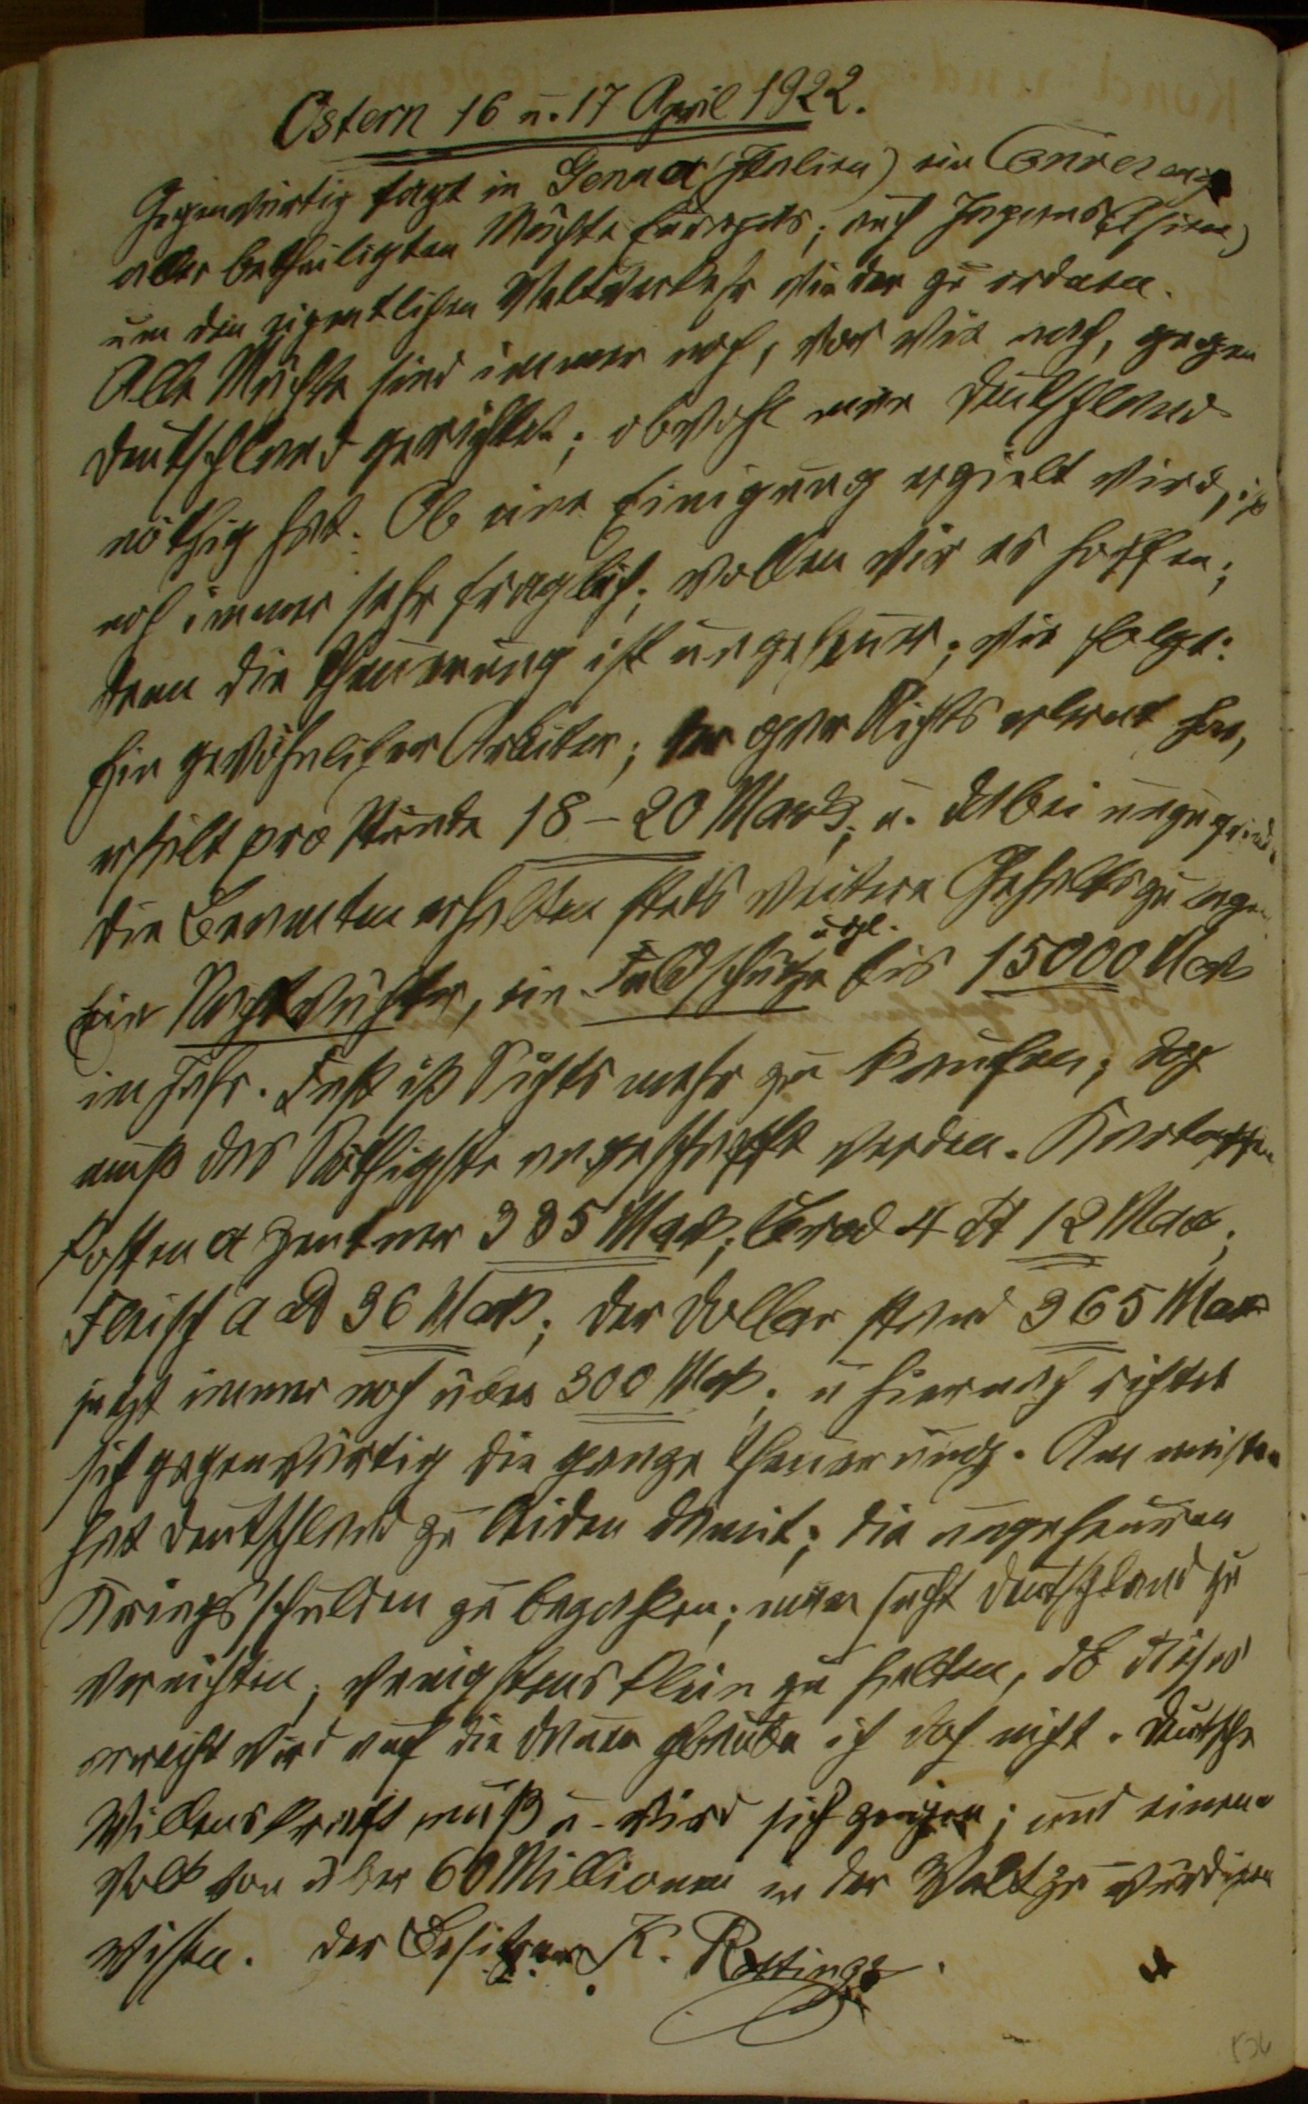 Ostern 16 u. 17 April 1922.
Gegenwärtig tagt in Genua (Italien) ein Conferenz
aller betheiligten Mächte Europas; auch Japans (Asien)
um den eigentlichen Weltverkehr wieder zu ordnen.
Alle Mächte sind immer noch, vor wie nach, gegen
Deutschland gerichtet; obwohl man Deutschland
nöthig hat. Ob eine Einigung erzielt wird, ist
noch immer sehr fraglich; wollen wir es hoffen;
denn die Theuerung ist ungeheuer; wie folgt:
Ein gewöhnlicher Arbeiter; der gar Nichts erlernt hat,
erhält pro Stunde 18-20 Mark; u. dabei
die Beamten erhalten stets weitere Gehaltszulagen
Ein Nachtwächter, ein Feldschütze u dgl. bis 15000 Mark
im Jahr. Fast ist Nichts mehr zu kaufen; doch
muß das Nöthigste angeschafft werden. Kartoffeln
kosten a Zentner 385 Mark; Brod 4 ℔ 12 Mark;
Fleisch a ℔ 36 Mark; der Dollar stand 365 Mark
jetzt immer noch über 300 Mark; u hiernach richtet
sich gegenwärtig die ganze Theuerung. Am meisten
hat Deutschland zu leiden damit; die ungeheuren
Kriegsschulden zu bezahlen; man sucht Deutschland zu
vernichten, wenigstens klein zu halten, ob dieses
erreicht wird auf die Dauer glaube ich doch nicht. Deutsche
Willenskraft muß u. wird sich zeigen; und einem
Volk von über 60 Millionen in der Welt zu würdigen
wissen. Der Besitzer K. Rottinge